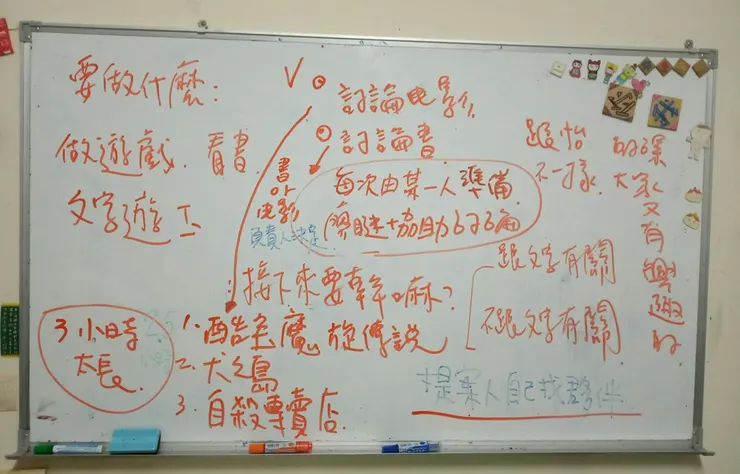 要做什麼：
做遊戲. 看書.
文字遊工
V
討論电影
討論書
書 or 电影
負責人決定
每次由某一人準備
協助討論
跟怡 的課
不一樣. 大家又有興趣的
接下來要幹嘛？
跟文字有關
不跟文字有關
3 小時
太長.
2.5
小時
1. 酷魔旋傳說
2. 犬之島
3. 自殺專賣店.
提案人自己找夥伴